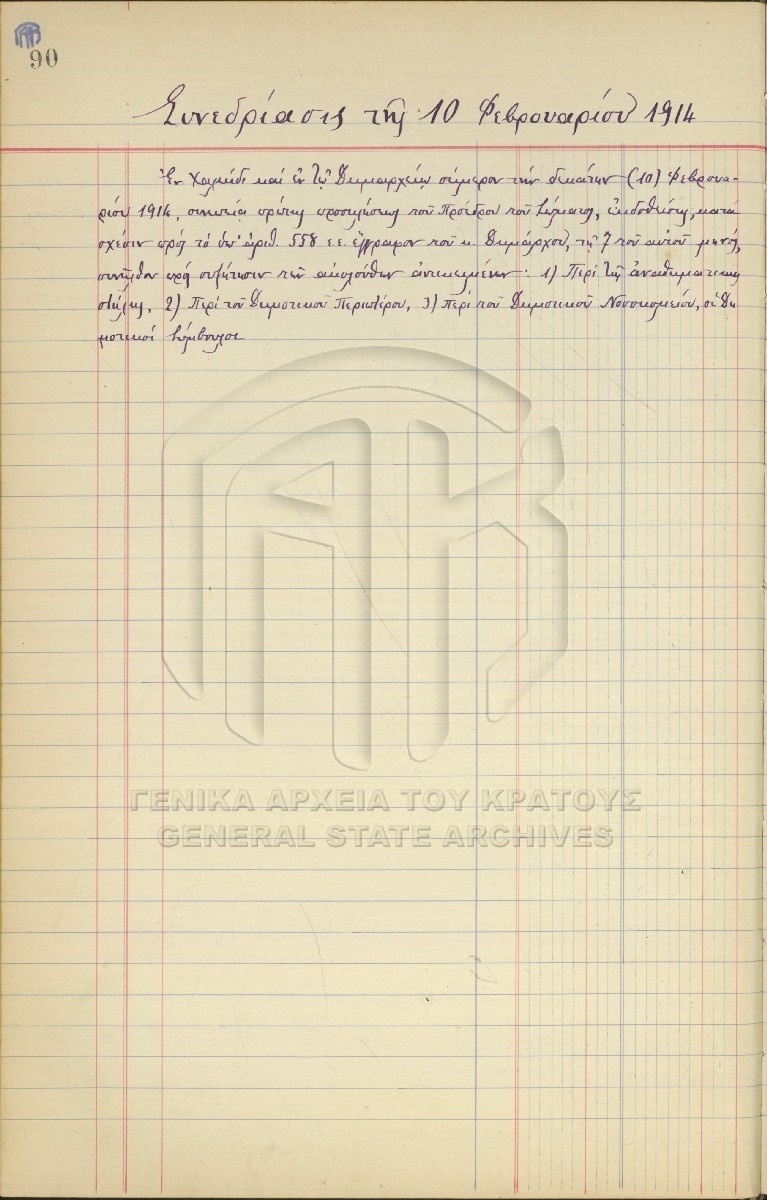 90
Συνεδρίασις τῆς 10 Φεβρουαρίου 1914
Ἐν Χαλκίδι καὶ ἐν τῷ Δημαρχείῳ σήμερον τὴν δεκάτην (10) Φεβρουα-
ρίου 1914, συνεπείᾳ πρώτης προσκλήσεως τοῦ Προέδρου τοῦ Σώματος, ἐκδοθείσης, κατὰ
σχέσιν πρὸς τὸ ὑπ' ἀριθ. 558 ἐ.ἔ. ἔγγραφον τοῦ κ. Δημάρχου, τῇ 7 τοῦ αὐτοῦ μηνός,
συνῆλθον πρὸς συζήτησιν τῶν ἀκολούθων ἀντικειμένων: 1) Περὶ τῆς ἀναθηματικῆς
στήλης, 2) Περὶ τοῦ Δημοτικοῦ Περιπτέρου, 3) Περὶ τοῦ Δημοτικοῦ Νοσοκομείου, οἱ Δη
μοτικοὶ Σύμβουλοι
ΓΕΝΙΚΑ ΑΡΧΕΙΑ ΤΟΥ ΚΡΑΤΟΥΣ
GENERAL STATE ARCHIVES